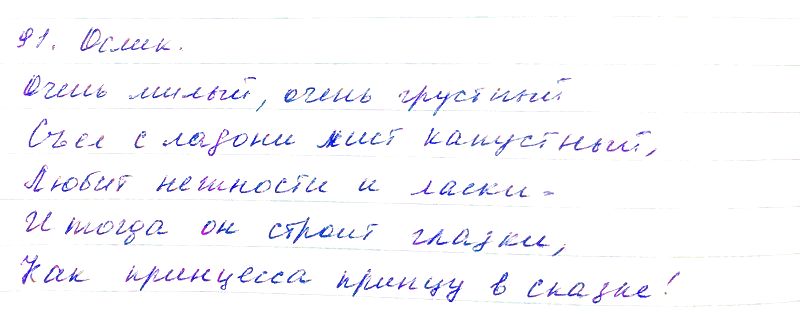 91. Ослик.
Очень милый, очень грустный
Съел с ладони лист капустный,
Любит нежности и ласки -
И тогда он строит глазки,
Как принцесса принцу в сказке!